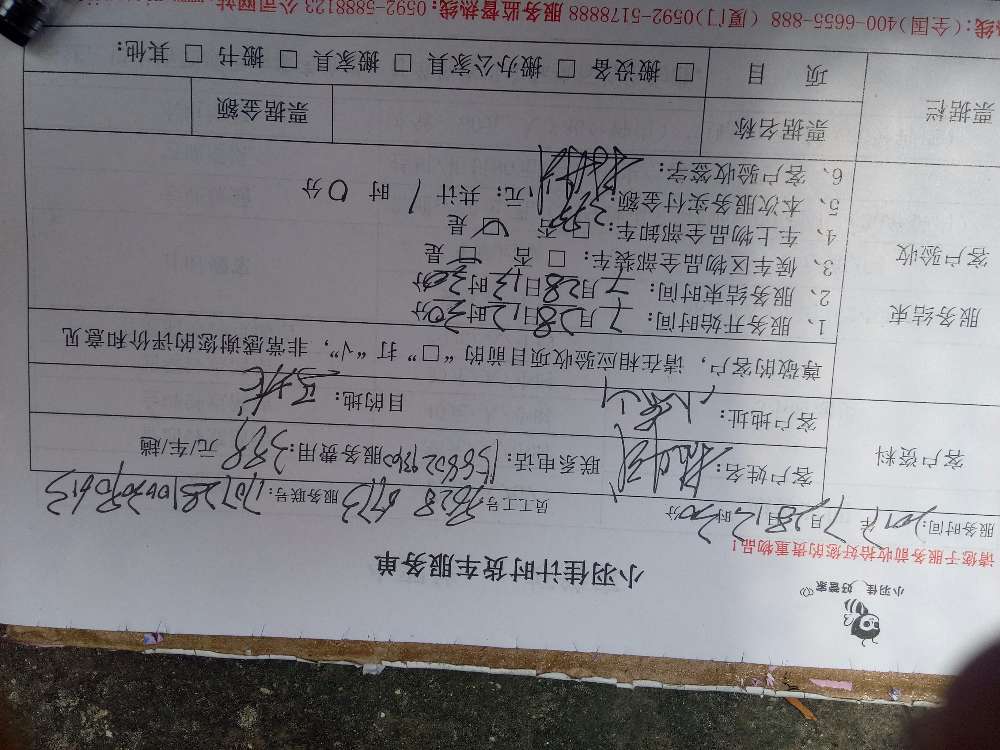 小羽佳 好管家
小羽佳计时货车服务单
请您于服务前收拾好您的贵重物品!
服务时间: 2017年7月28日12时30分 员工工号: 服务联号:
客户资料 客户姓名: 联系电话: 服务费用: 338 元/车/趟
客户地址: 目的地:
尊敬的客户, 请在相应验收项目前的“□”打“√”, 非常感谢您的评价和意见
服务结束 客户验收
1、服务开始时间: 7月28日12时30分
2、服务结束时间: 7月28日13时30分
3、候车区物品全部装车: □ 否 □ 是
4、车上物品全部卸车: □ 否 □ 是
5、本次服务实付金额: 338 元; 共计 1 时 0 分
6、客户验收签字:
票据栏 票据名称 票据金额
项目 □ 搬设备 □ 搬办公家具 □ 搬家具 □ 搬书 □ 其他:
线:(全国)400-6655-888 (厦门)0592-5178888 服务监督热线:0592-5888123 公司网站